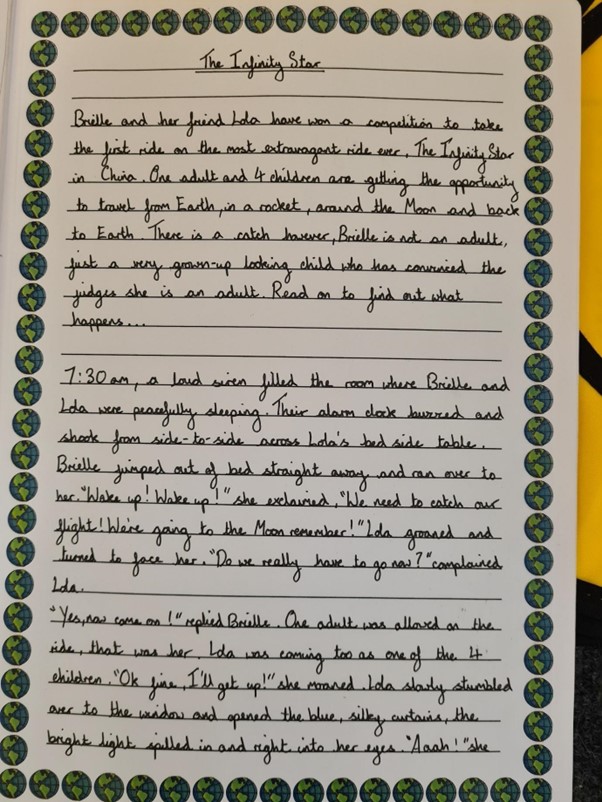 The Infinity Star
Brielle and her friend Lola have won a competition to take
the first ride on the most extravagant ride ever, The Infinity Star
in China. One adult and 4 children are getting the opportunity
to travel from Earth, in a rocket, around the Moon and back
to Earth. There is a catch however, Brielle is not an adult,
just a very grown-up looking child who has convinced the
judges she is an adult. Read on to find out what
happens...
7:30am, a loud siren filled the room where Brielle and
Lola were peacefully sleeping. Their alarm clock buzzed and
shook from side-to-side across Lola's bed side table.
Brielle jumped out of bed straight away and ran over to
her. "Wake up! Wake up!" she exclaimed, "We need to catch our
flight! We're going to the Moon remember!" Lola groaned and
turned to face her. "Do we really have to go now?" complained
Lola.
"Yes, now come on!" replied Brielle. One adult was allowed on the
ride, that was her. Lola was coming too as one of the 4
children. "Ok fine, I'll get up!" she moaned. Lola slowly stumbled
over to the window and opened the blue, silky curtains, the
bright light spilled in and right into her eyes. "Aaah!" she